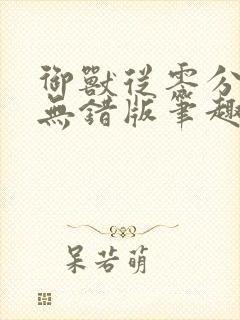 御獸從零分
無錯版筆趣
呆若萌